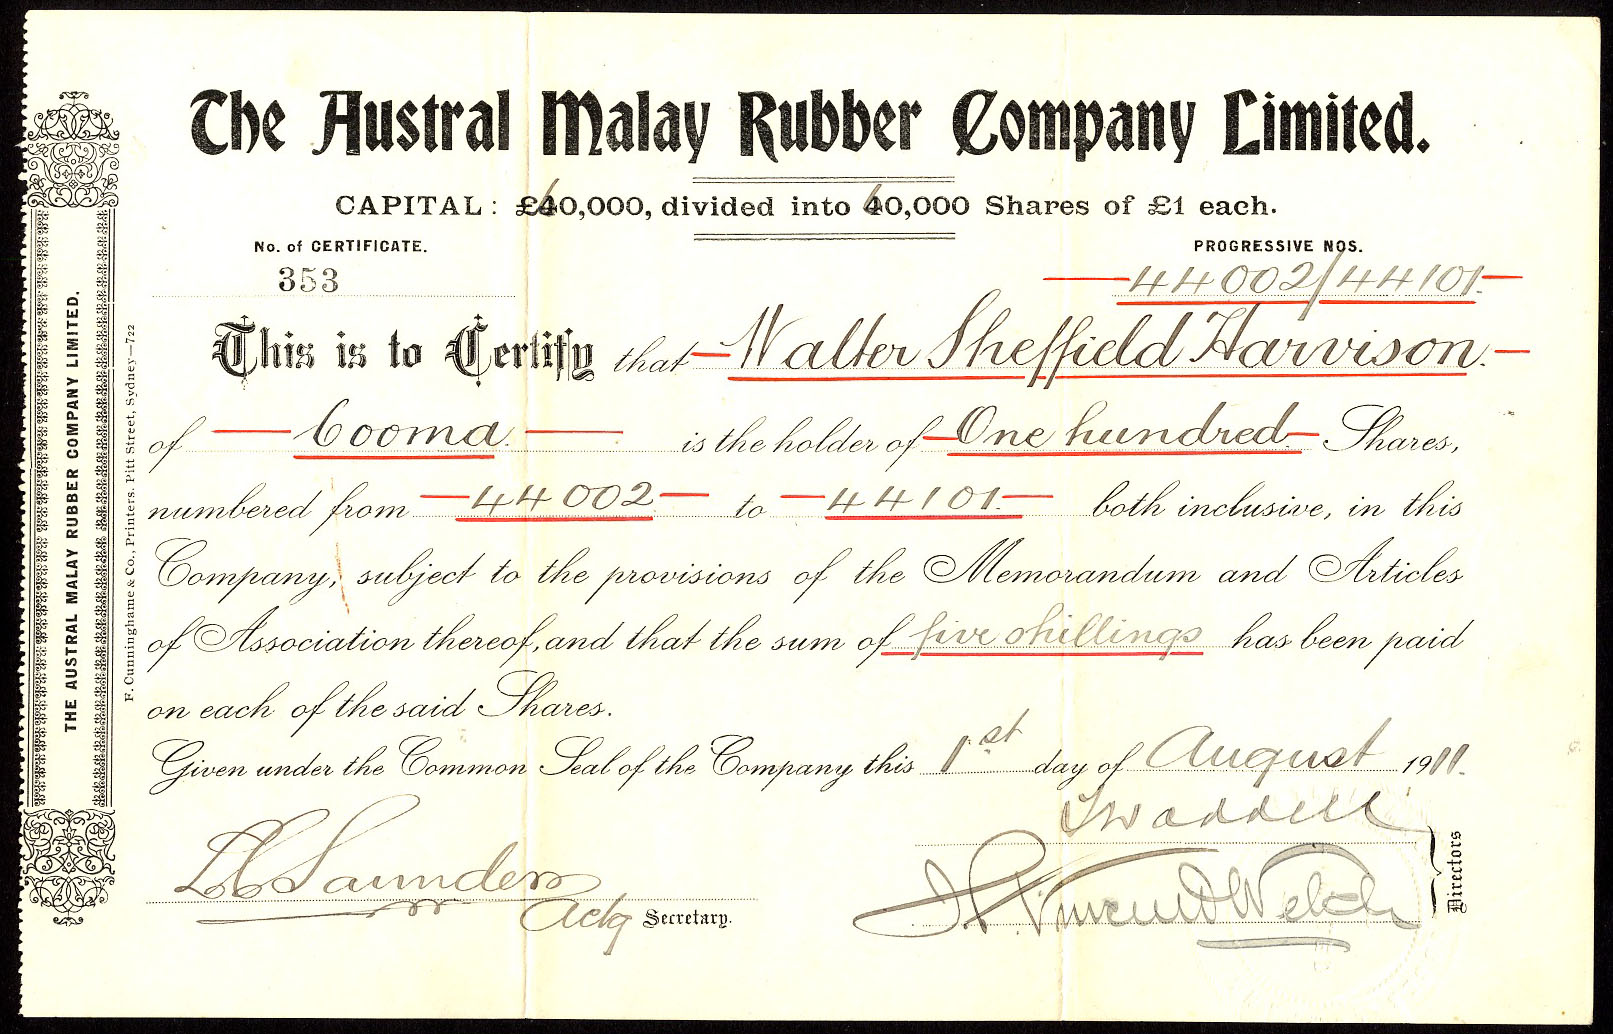 The Austral Malay Rubber Company Limited.
CAPITAL: £60,000, divided into 60,000 Shares of £1 each.
No. of CERTIFICATE.
PROGRESSIVE NOS.
353
44002/44101
This is to Certify that Walter Sheffield Harvison.
of Cooma. is the holder of One hundred Shares,
numbered from 44002 to 44101 both inclusive, in this
Company, subject to the provisions of the Memorandum and Articles
of Association thereof, and that the sum of five shillings has been paid
on each of the said Shares.
Given under the Common Seal of the Company this 1st day of August 1911.
T Waddell
Saunders
J. Vincent Welch
Directors
Actg Secretary.
THE AUSTRAL MALAY RUBBER COMPANY LIMITED.
F. Cunninghame & Co., Printers, Pitt Street, Sydney—722